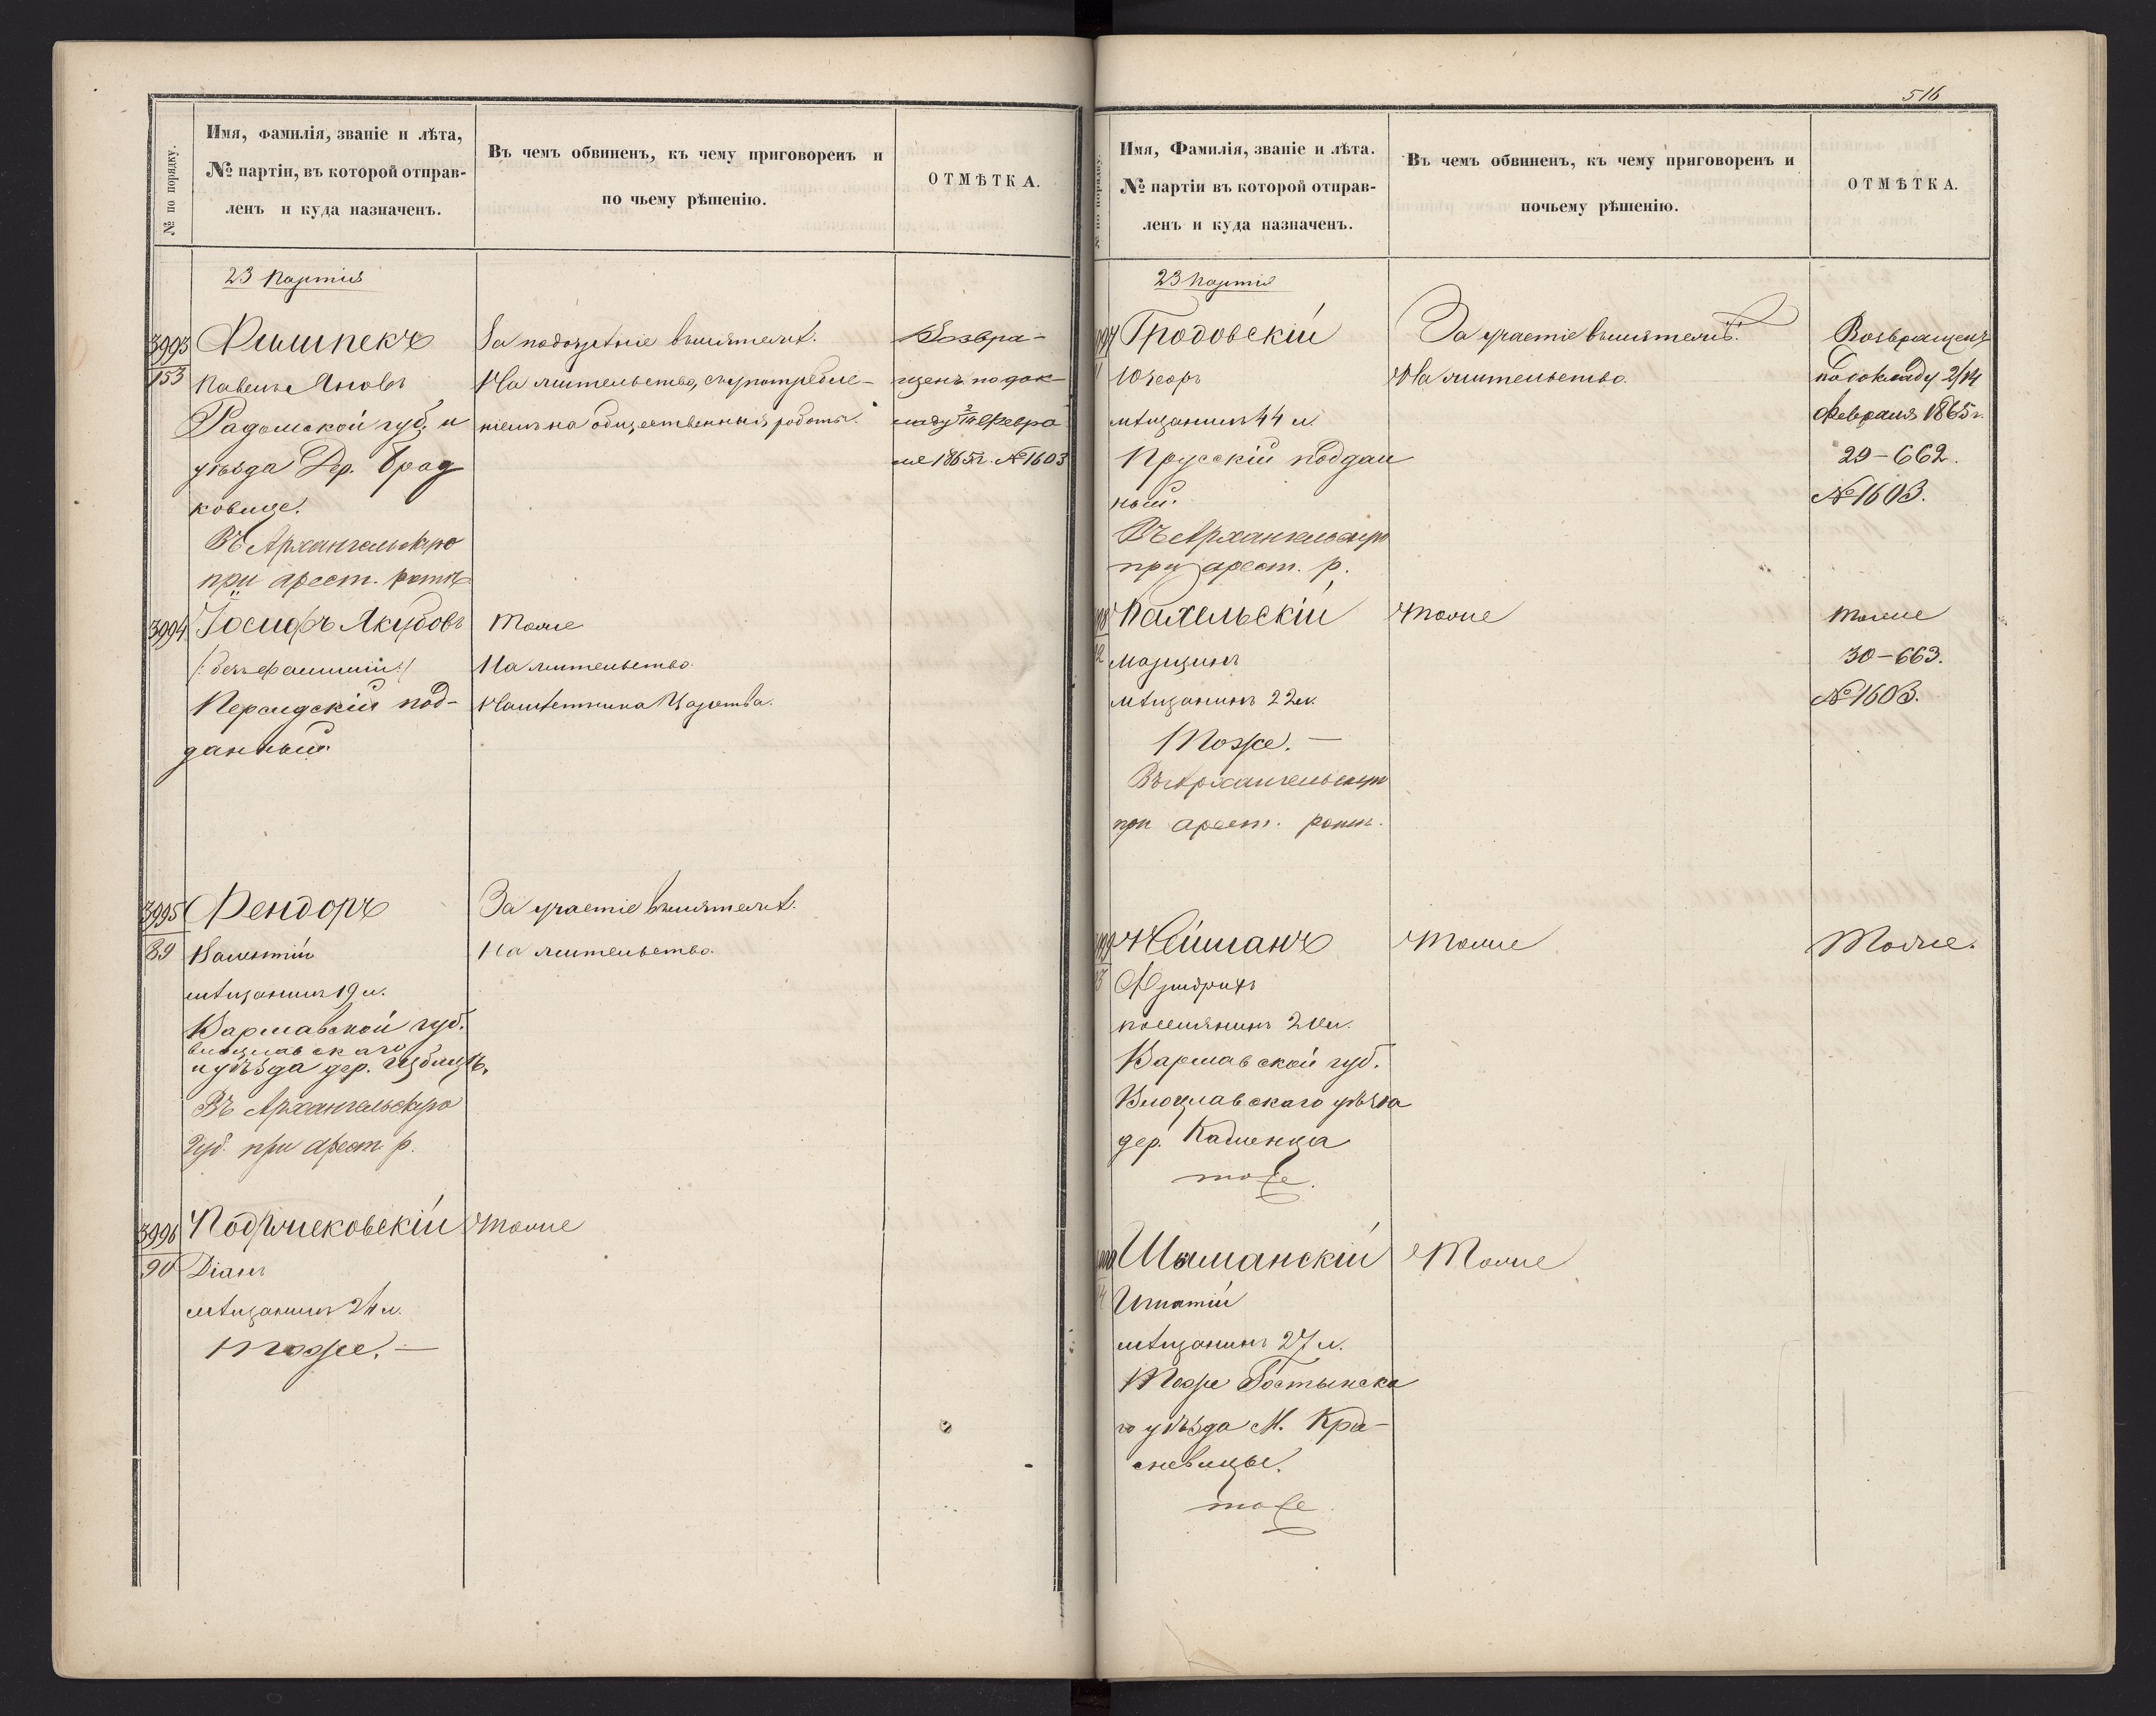 № по порядку.
Имя, фамилія, званіе и лѣта,
№ партіи, въ которой отправ-
ленъ и куда назначенъ.
Въ чемъ обвиненъ, къ чему приговоренъ и
по чьему рѣшенію.
ОТМѢТКА.
23 партія
3993
153
Павелъ Яновъ
Радомской губ. и
уѣзда Дер. Брад
ковице.
Въ Архангельскую
при арест. ротѣ
За подозрѣніе въ мятежѣ.
На жительство, съ употребле-
ніемъ на общественныя работы.
Возвра-
щенъ по док-
ладу 2/14 Февра
ля 1865 г. № 1603
3994
Іосифъ Якубовъ
(: безъ фамиліи :)
Персидскій под-
данный.
тоже
На жительство
3995
89
Фендоръ
Валентій
мѣщанинъ 19 л.
Варшавской губ.
влоцлавскаго
уѣзда дер.
Въ Архангельскую
Губ. при арест. р.
За участіе въ мятежѣ.
На жительство.
3996
90
мѣщанинъ 24 л.
тоже. —
тоже
516
Имя, Фамилія, званіе и лѣта.
№ партіи въ которой отправ-
ленъ и куда назначенъ.
Въ чемъ обвиненъ, къ чему приговоренъ и
почьему рѣшенію.
ОТМѢТКА.
23 партія
Гродовскій
мѣщанинъ 44 л.
Прусскій поддан
ный.
Въ Архангельскую
при арест. р.
За участіе въ мятежѣ.
На жительство.
Возвращенъ
по докладу 2/14
Февраля 1865 г.
29-662.
№ 1603.
Пахельскій
мѣщанинъ 22 л.
Тоже. —
Въ Архангельскую
при арест. ротѣ.
тоже
тоже
30-663.
№ 1603.
Нейманъ
Фридрихъ
Варшавской губ.
Влоцлавскаго уѣзда
дер. Каменка
тоже.
тоже
Тоже.
Шиманскій
Игнатій
мѣщанинъ 27 л.
Тоже Гостынска
го уѣзда М. Кра-
сневицы.
тоже.
Тоже